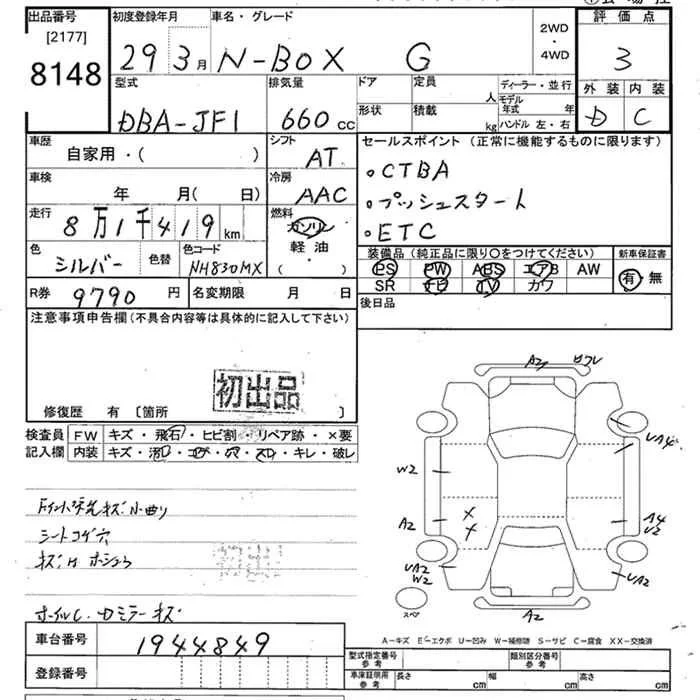 出品番号 初度登録年月 車名・グレード 2WD ・ 4WD 評価点
[2177]
8148 29 3月 N-BOX G 3
型式 排気量 ドア 定員 人 ディーラー・並行 外装 内装
形状 積載 kg モデル年式 年 ハンドル 左・右
DBA-JF1 660 cc D C
車歴 シフト セールスポイント (正常に機能するものに限ります)
自家用・( ) AT
・CTBA
車検 冷房
年 月( 日) AAC
・プッシュスタート
走行 燃料
8万1千419 km ガソリン
・ETC
色 色替 色コード 軽油
シルバー NH830MX ・( )
装備品 (純正品に限り○をつけてください) 新車保証書
PS PW ABS エアB AW 有・無
SR ナビ TV カワ
R券 9790 円 名変期限 月 日 後日品
注意事項申告欄 (不具合内容等は具体的に記入して下さい)
初出品
修復歴 有 〔箇所 〕
検査員 FW キズ・飛石・ヒビ割・リペア跡・×要
記入欄 内装 キズ・汚レ・コゲ・穴・スレ・キレ・破レ
A2
W2
A2
UA2
W2
スペア
UA4
A4
U2
UA2
A2
シートコゲ穴
車台番号 1944849
登録番号
A-キズ E-エクボ U-凹み W-補修跡 S-サビ C-腐食 XX-交換済
型式指定番号 参考 類別区分番号 参考
車庫証明用 参考 長さ cm 幅 cm 高さ cm